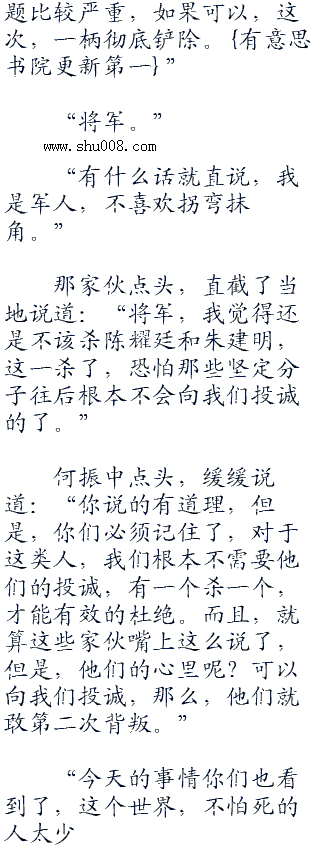 题比较严重，如果可以，这
次，一柄彻底铲除。{有意思
书院更新第一}”
“将军。”
www.shu008.com
“有什么话就直说，我
是军人，不喜欢拐弯抹
角。”
那家伙点头，直截了当
地说道：“将军，我觉得还
是不该杀陈耀廷和朱建明，
这一杀了，恐怕那些坚定分
子往后根本不会向我们投诚
的了。”
何振中点头，缓缓说
道：“你说的有道理，但
是，你们必须记住了，对于
这类人，我们根本不需要他
们的投诚，有一个杀一个，
才能有效的杜绝。而且，就
算这些家伙嘴上这么说了，
但是，他们的心里呢？可以
向我们投诚，那么，他们就
敢第二次背叛。”
“今天的事情你们也看
到了，这个世界，不怕死的
人太少